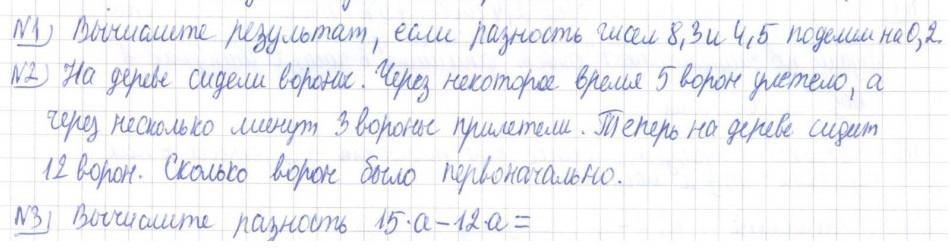 N1) Вычислите результат, если разность чисел 8,3 и 4,5 поделим на 0,2.
N2) На дереве сидели вороны. Через некоторое время 5 ворон улетело, а
через несколько минут 3 вороны прилетели. Теперь на дереве сидит
12 ворон. Сколько ворон было первоначально.
N3) Вычислите разность 15·а-12·а=